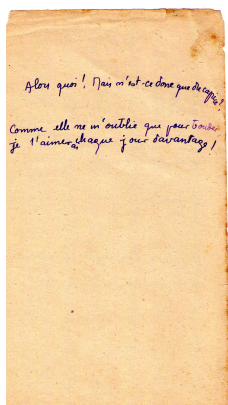 Alors quoi ! Mais n'est-ce donc que du caprice ?
Comme elle ne m'oublie que pour
je l'aimerai chaque jour davantage !